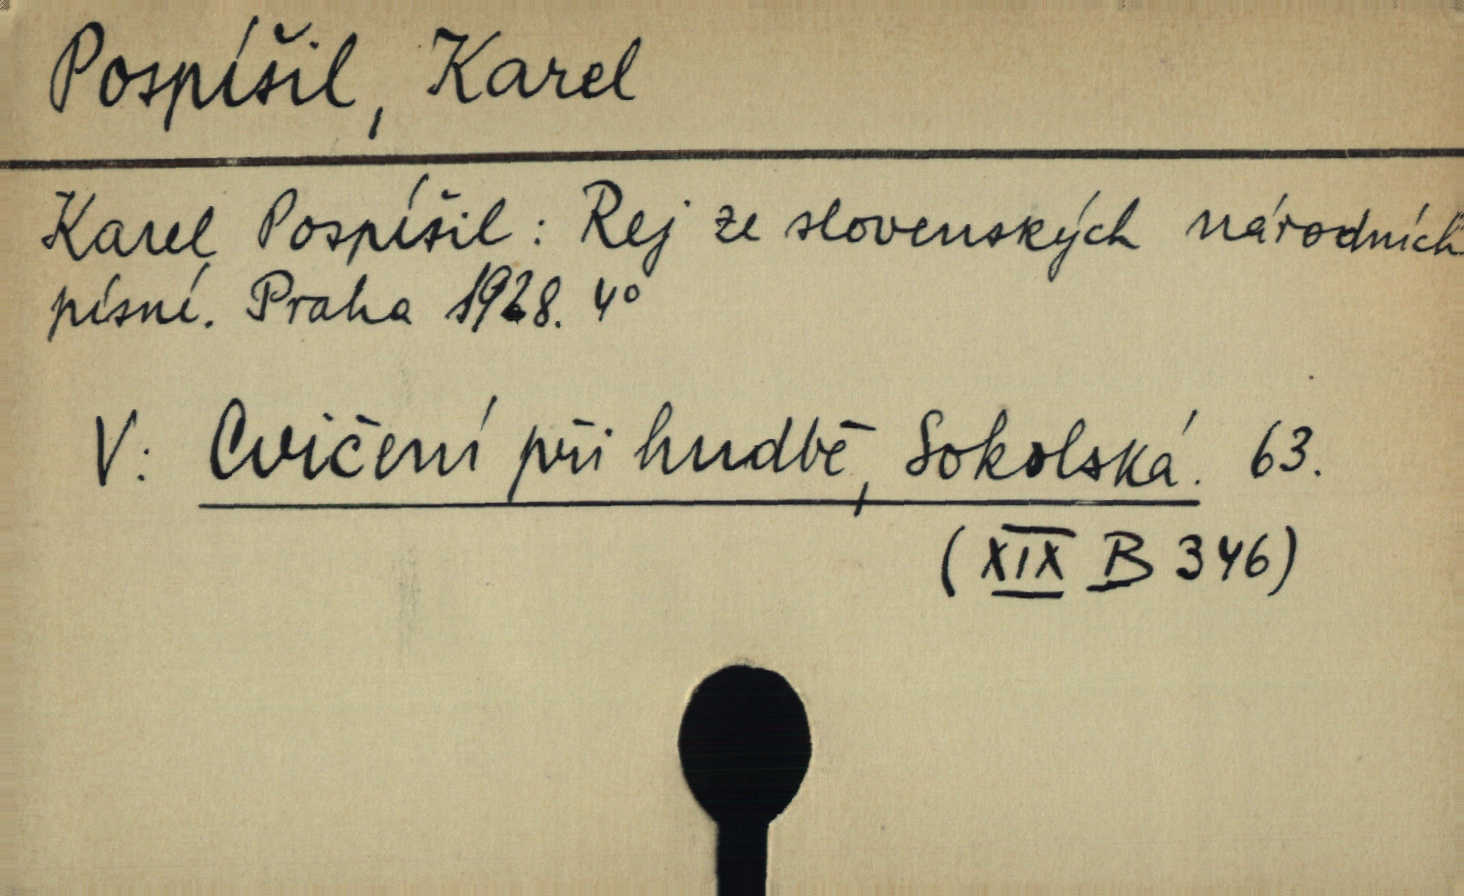 Pospíšil, Karel
Karel Pospíšil: Rej ze slovenských národních
písní. Praha 1928. 4°
V: Cvičení při hudbě, Sokolská. 63.
(XIX B 346)